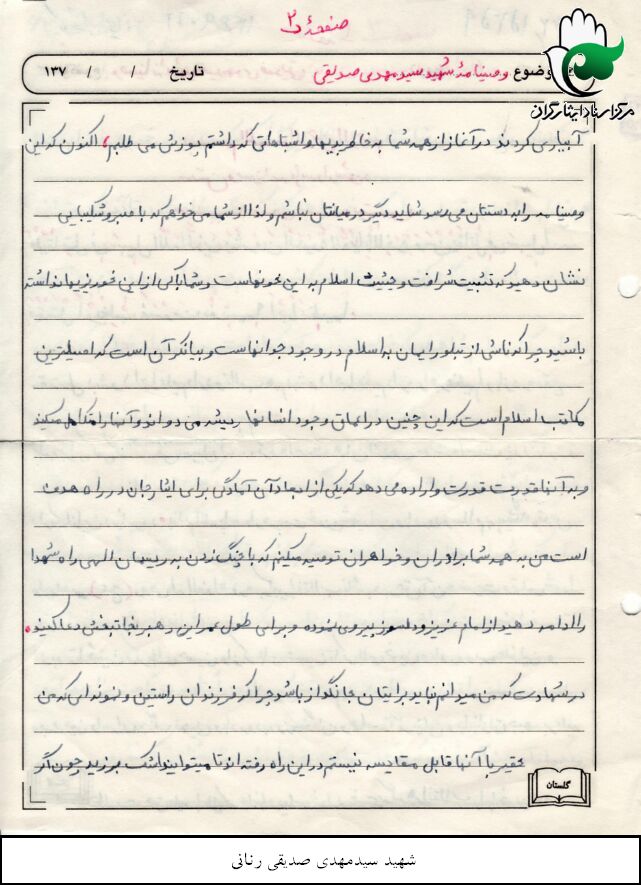 صفحهٔ ۲
موضوع وصیتنامهٔ شهید سید مهدی صدیقی تاریخ / / ۱۳۷
مرکز اسناد ایثارگران
آبیاری کردند در آغاز از همه شما به خاطر بدیها و اشتباهاتی که داشتم پوزش می طلبم، اکنون که این
وصیتنامه را به دستتان می رسد شاید دیگر در میانتان نباشم ولذا از شما می خواهم که با صبر و شکیبایی
نشان دهید که تثبیت شرافت و حیثیت اسلام به این خونهاست و شما باکی از این خونریزیها نداشته
باشید چرا که ناشی از تبلور ایمان به اسلام در وجود جوانهاست و بیانگر آن است که اصیلترین
مکاتب اسلام است که این چنین در اعماق وجود انسانها ریشه می دواند و آنها را متکامل میکند
و به آنها قدرت و اراده می دهد که یکی از ابعاد آن آمادگی برای ایثار جان در راه هدف
است من به همه شما برادران و خواهران توصیه میکنم که با چنگ زدن به ریسمان الهی راه شهدا
را ادامه دهید از امام عزیز و دلسوز پیروی نموده و برای طول عمر این رهبر نجاتبخش دعا کنید.
در شهادت که من میدانم نباید برایتان جانگداز باشد چرا که فرزندان راستین و نمونه ای که من
حقیر با آنها قابل مقایسه نیستم در این راه رفته اند تا میتوانید اشک بریزید چون اگر
گلستان
شهید سیدمهدی صدیقی رنانی